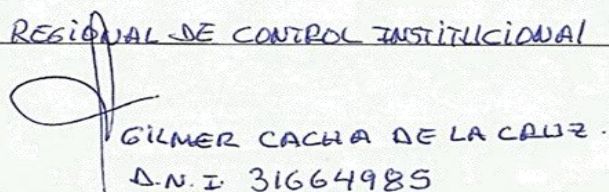 REGIONAL DE CONTROL INSTITUCIONAL
GILMER CACHA DE LA CRUZ.
D.N.I. 31664985